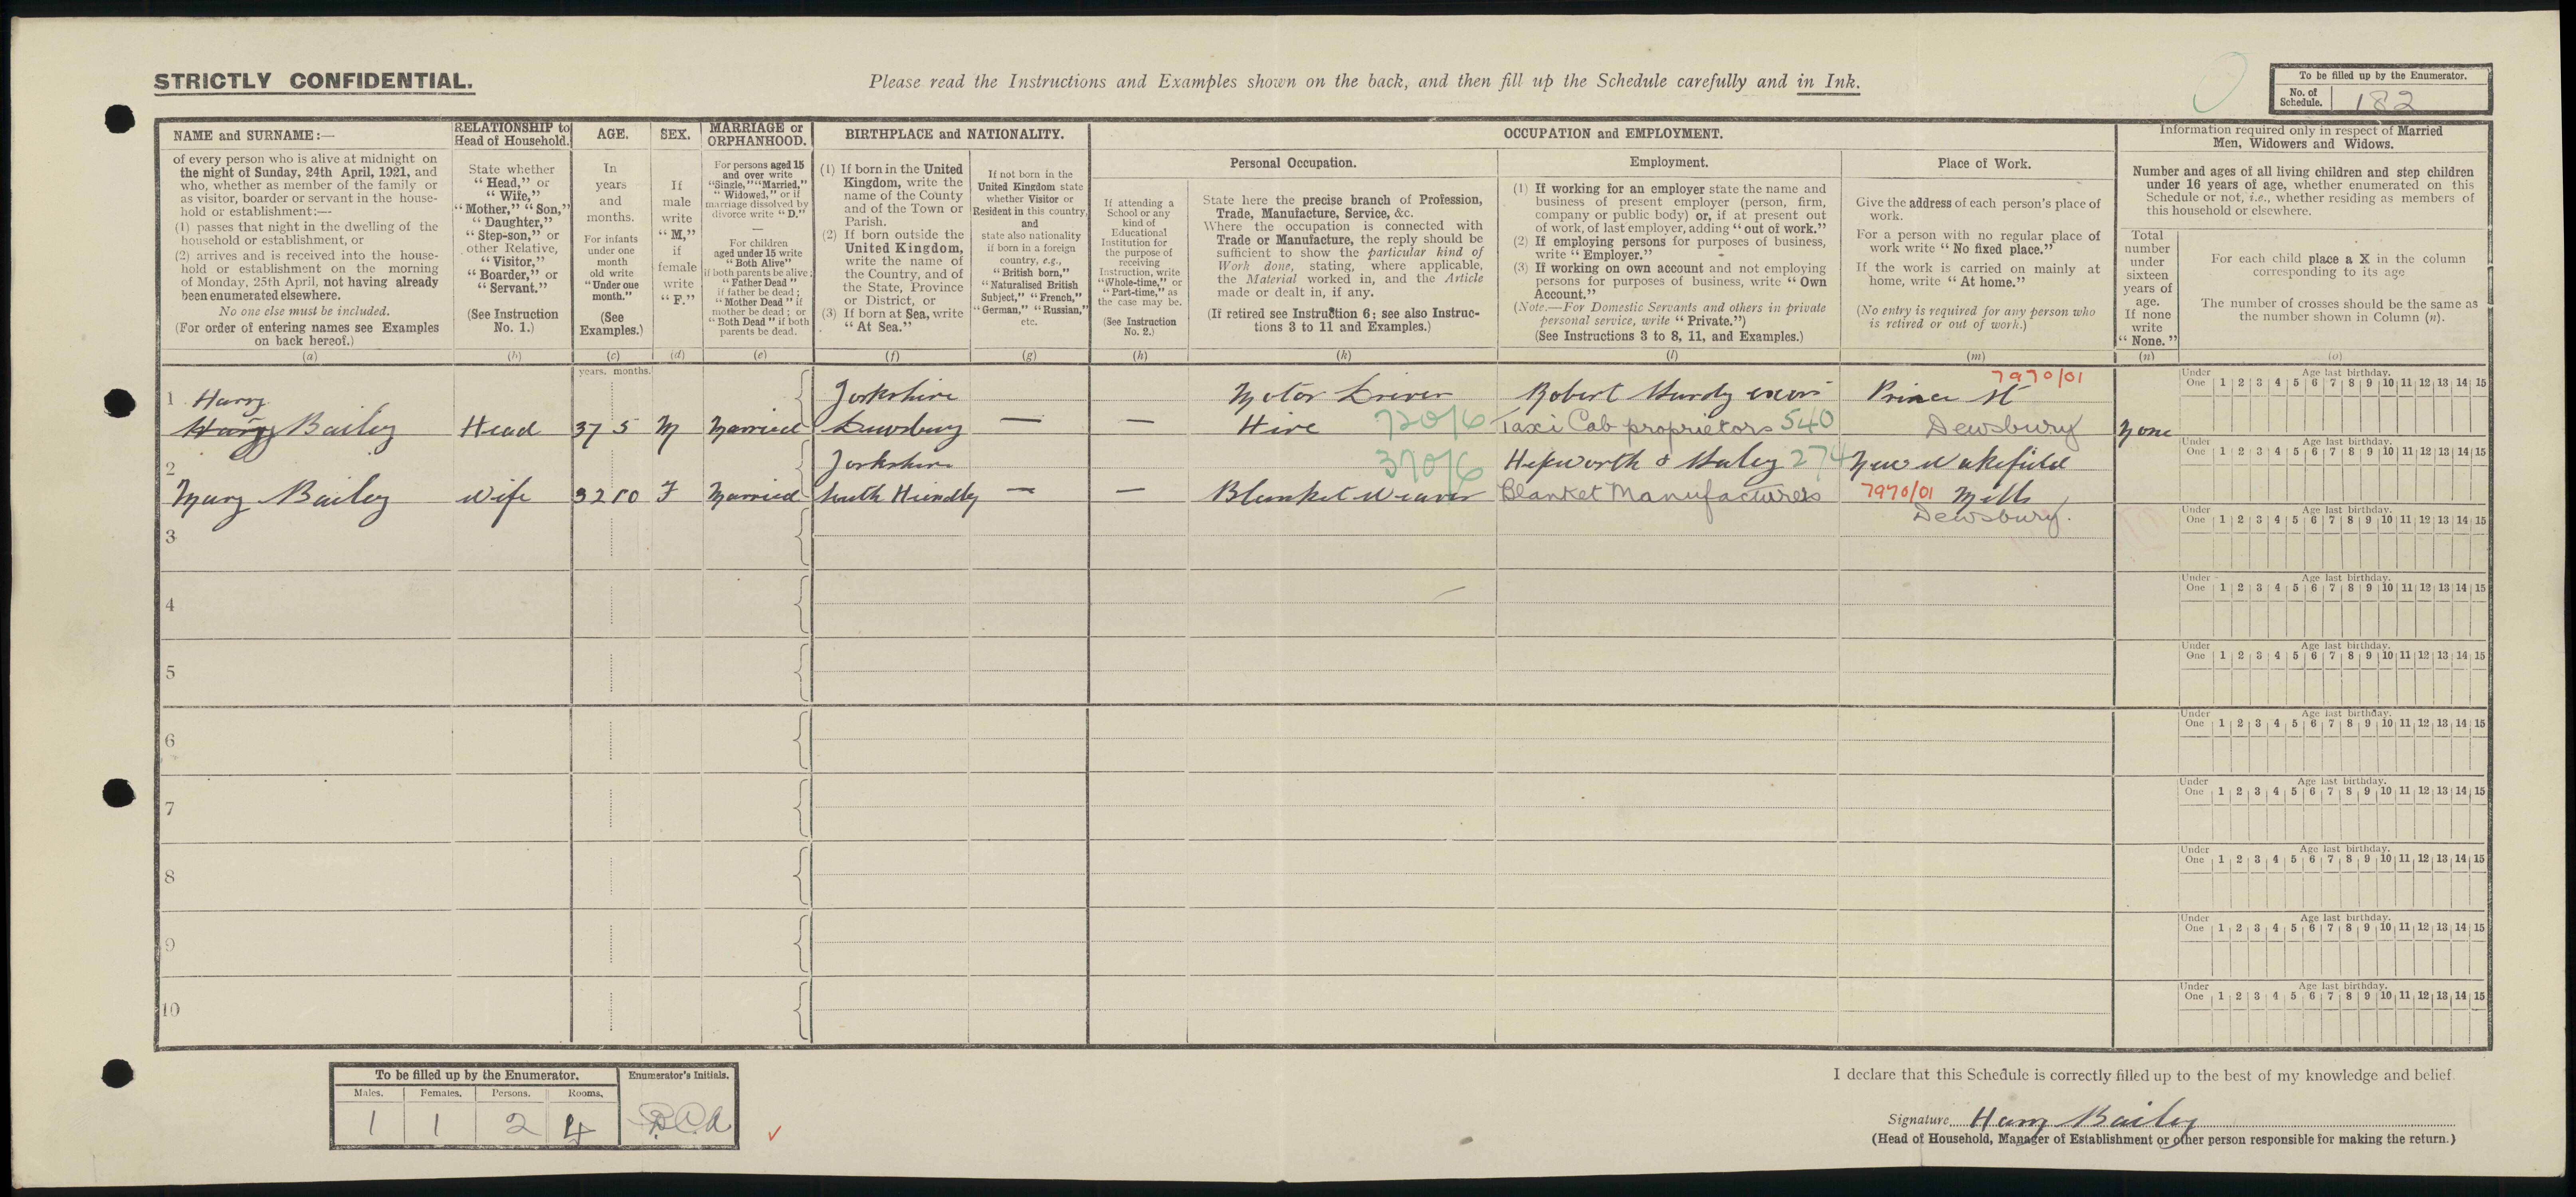 STRICTLY CONFIDENTIAL.
Please read the Instructions and Examples shown on the back, and then fill up the Schedule carefully and in Ink.
To be filled up by the Enumerator.
No. of Schedule. 182
NAME and SURNAME:—
of every person who is alive at midnight on
the night of Sunday, 24th April, 1921, and
who, whether as member of the family or
as visitor, boarder or servant in the house-
hold or establishment:—
(1) passes that night in the dwelling of the
household or establishment, or
(2) arrives and is received into the house-
hold or establishment on the morning
of Monday, 25th April, not having already
been enumerated elsewhere.
No one else must be included.
(For order of entering names see Examples
on back hereof.)
(a)
RELATIONSHIP to
Head of Household.
State whether
"Head," or
"Wife,"
"Mother," "Son,"
"Daughter,"
"Step-son," or
other Relative,
"Visitor,"
"Boarder," or
"Servant."
(See Instruction
No. 1.)
(b)
AGE.
In
years
and
months.
For infants
under one
month
old write
"Under one
month."
(See
Examples.)
(c)
SEX.
If
male
write
"M,"
if
female
write
"F."
(d)
MARRIAGE or
ORPHANHOOD.
For persons aged 15
and over write
"Single," "Married,"
"Widowed," or if
marriage dissolved by
divorce write "D."
—
For children
aged under 15 write
"Both Alive"
if both parents be alive;
"Father Dead"
if father be dead;
"Mother Dead" if
mother be dead; or
"Both Dead" if both
parents be dead.
(e)
BIRTHPLACE and NATIONALITY.
(1) If born in the United
Kingdom, write the
name of the County
and of the Town or
Parish.
(2) If born outside the
United Kingdom,
write the name of
the Country, and of
the State, Province
or District, or
(3) If born at Sea, write
"At Sea."
(f)
If not born in the
United Kingdom state
whether Visitor or
Resident in this country,
and
state also nationality
if born in a foreign
country, e.g.,
"British born,"
"Naturalised British
Subject," "French,"
"German," "Russian,"
etc.
(g)
OCCUPATION and EMPLOYMENT.
If attending a
School or any
kind of
Educational
Institution for
the purpose of
receiving
Instruction, write
"Whole-time," or
"Part-time," as
the case may be.
(See Instruction
No. 2.)
(h)
Personal Occupation.
State here the precise branch of Profession,
Trade, Manufacture, Service, &c.
Where the occupation is connected with
Trade or Manufacture, the reply should be
sufficient to show the particular kind of
Work done, stating, where applicable,
the Material worked in, and the Article
made or dealt in, if any.
(If retired see Instruction 6; see also Instruc-
tions 3 to 11 and Examples.)
(k)
Employment.
(1) If working for an employer state the name and
business of present employer (person, firm,
company or public body) or, if at present out
of work, of last employer, adding "out of work."
(2) If employing persons for purposes of business,
write "Employer."
(3) If working on own account and not employing
persons for purposes of business, write "Own
Account."
(Note.—For Domestic Servants and others in private
personal service, write "Private.")
(See Instructions 3 to 8, 11, and Examples.)
(l)
Place of Work.
Give the address of each person's place of
work.
For a person with no regular place of
work write "No fixed place."
If the work is carried on mainly at
home, write "At home."
(No entry is required for any person who
is retired or out of work.)
(m)
Information required only in respect of Married
Men, Widowers and Widows.
Number and ages of all living children and step children
under 16 years of age, whether enumerated on this
Schedule or not, i.e., whether residing as members of
this household or elsewhere.
Total
number
under
sixteen
years of
age.
If none
write
"None."
(n)
For each child place a X in the column
corresponding to its age
The number of crosses should be the same as
the number shown in Column (n).
(o)
years. months.
1 Harry Yorkshire Motor Driver Robert Hurdy exors Prince St 7970/01
Harry Bailey Head 37 5 M Married Dewsbury — — Hire 720/6 Taxi Cab proprietors 540 Dewsbury None
Under One Age last birthday. 1 2 3 4 5 6 7 8 9 10 11 12 13 14 15
2 Yorkshire 370/6 Hepworth & Haley 274 New Wakefield
Mary Bailey Wife 32 10 F Married South Hiendley — — Blanket Weaver Blanket Manufacturers 7970/01 Mills
Dewsbury.
Under One Age last birthday. 1 2 3 4 5 6 7 8 9 10 11 12 13 14 15
3
Under One Age last birthday. 1 2 3 4 5 6 7 8 9 10 11 12 13 14 15
4
Under One Age last birthday. 1 2 3 4 5 6 7 8 9 10 11 12 13 14 15
5
Under One Age last birthday. 1 2 3 4 5 6 7 8 9 10 11 12 13 14 15
6
Under One Age last birthday. 1 2 3 4 5 6 7 8 9 10 11 12 13 14 15
7
Under One Age last birthday. 1 2 3 4 5 6 7 8 9 10 11 12 13 14 15
8
Under One Age last birthday. 1 2 3 4 5 6 7 8 9 10 11 12 13 14 15
9
Under One Age last birthday. 1 2 3 4 5 6 7 8 9 10 11 12 13 14 15
10
Under One Age last birthday. 1 2 3 4 5 6 7 8 9 10 11 12 13 14 15
To be filled up by the Enumerator. Enumerator's Initials.
Males. Females. Persons. Rooms.
1 1 2 4
I declare that this Schedule is correctly filled up to the best of my knowledge and belief.
Signature Harry Bailey
(Head of Household, Manager of Establishment or other person responsible for making the return.)